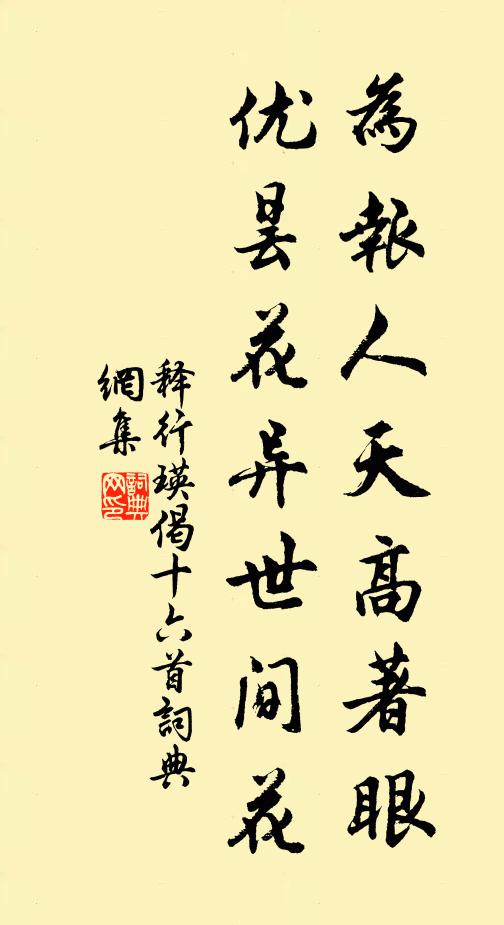 為報人天高著眼
优昙花异世间花
释行瑛偈十六首詞典
網集
詞典
网印